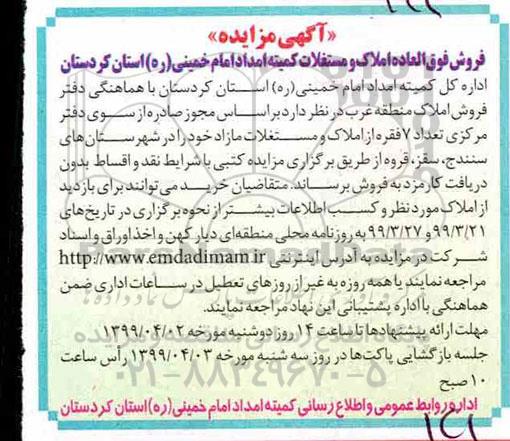 «آگهی مزایده»
فروش فوق العاده املاک و مستغلات کمیته امداد امام خمینی (ره) استان کردستان
اداره کل کمیته امداد امام خمینی (ره) استان کردستان با هماهنگی دفتر
فروش املاک منطقه غرب در نظر دارد براساس مجوز صادره از سوی دفتر
مرکزی تعداد ۷ فقره از املاک و مستغلات مازاد خود را در شهرستان‌های
سنندج، سقز، قروه از طریق برگزاری مزایده کتبی با شرایط نقد و اقساط بدون
دریافت کارمزد به فروش برساند. متقاضیان خرید می توانند برای بازدید
از املاک مورد نظر و کسب اطلاعات بیشتر از نحوه برگزاری در تاریخ‌های
۹۹/۳/۲۱ و ۹۹/۳/۲۷ به روزنامه محلی منطقه‌ای دیار کهن و اخذ اوراق و اسناد
شرکت در مزایده به آدرس اینترنتی http://www.emdadimam.ir
مراجعه نمایند یا همه روزه به غیر از روزهای تعطیل در ساعات اداری ضمن
هماهنگی با اداره پشتیبانی این نهاد مراجعه نمایند.
مهلت ارائه پیشنهادها تا ساعت ۱۴ روز دوشنبه مورخه ۱۳۹۹/۰۴/۰۲
جلسه بازگشایی پاکت‌ها در روز سه شنبه مورخه ۱۳۹۹/۰۴/۰۳ رأس ساعت
۱۰ صبح
اداره روابط عمومی و اطلاع رسانی کمیته امداد امام خمینی (ره) استان کردستان
۰۲۱-۸۸۳۴۹۶۷۰-۵